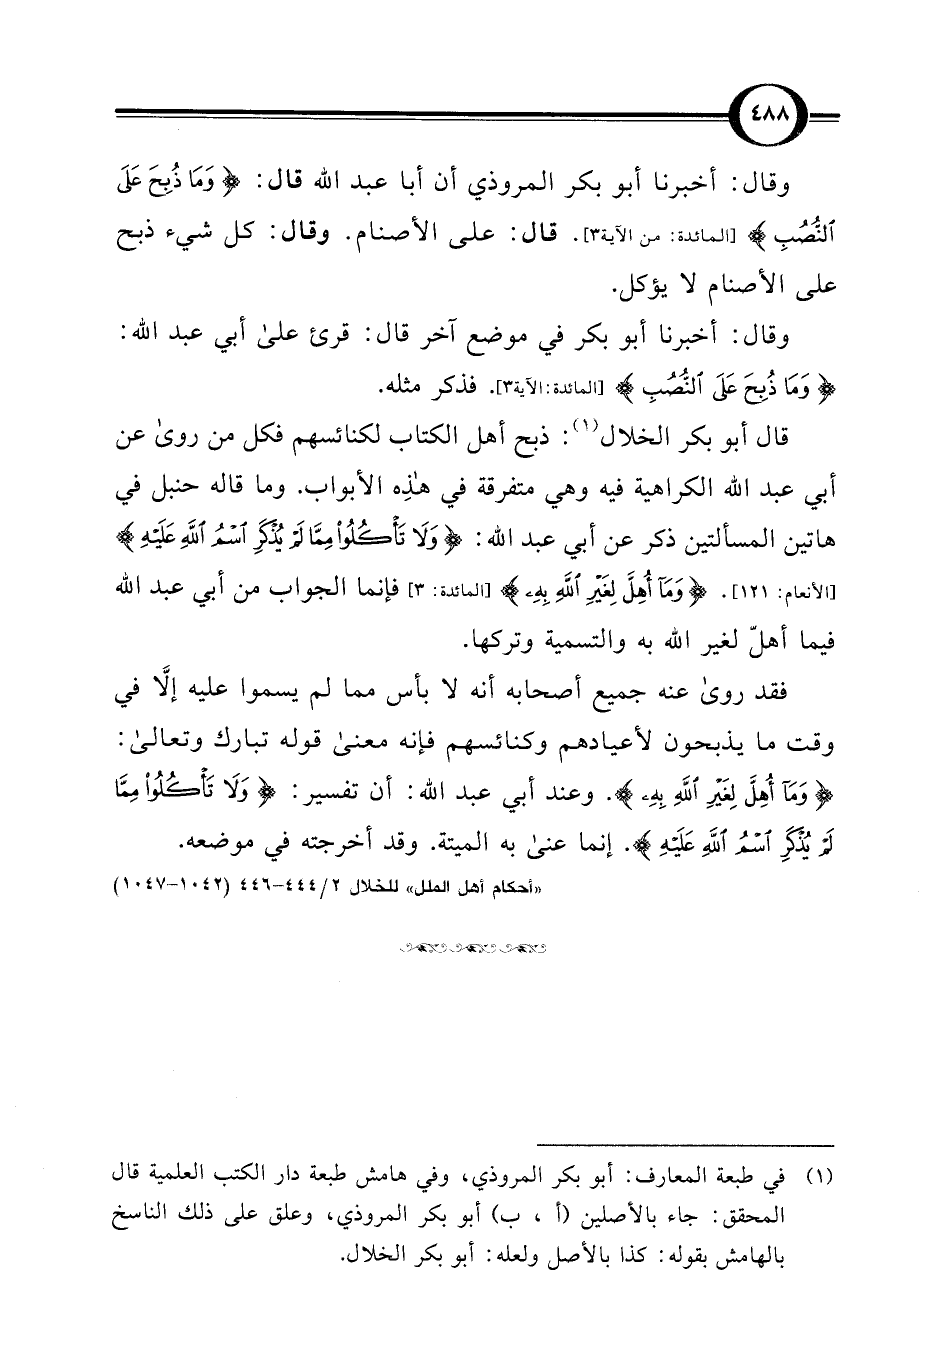 ٤٨٨
وقال: أخبرنا أبو بكر المروذي أن أبا عبد الله قال: ﴿ وَمَا ذُبِحَ عَلَى
ٱلنُّصُبِ ﴾ [المائدة: من الآية٣]. قال: على الأصنام. وقال: كل شيء ذبح
على الأصنام لا يؤكل.
وقال: أخبرنا أبو بكر في موضع آخر قال: قرئ علىٰ أبي عبد الله:
﴿ وَمَا ذُبِحَ عَلَى ٱلنُّصُبِ ﴾ [المائدة:الآية٣]. فذكر مثله.
قال أبو بكر الخلال(١): ذبح أهل الكتاب لكنائسهم فكل من روىٰ عن
أبي عبد الله الكراهية فيه وهي متفرقة في هٰذِه الأبواب. وما قاله حنبل في
هاتين المسألتين ذكر عن أبي عبد الله: ﴿ وَلَا تَأْكُلُوا۟ مِمَّا لَمْ يُذْكَرِ ٱسْمُ ٱللَّهِ عَلَيْهِ ﴾
[الأنعام: ١٢١]. ﴿ وَمَآ أُهِلَّ لِغَيْرِ ٱللَّهِ بِهِۦ ﴾ [المائدة: ٣] فإنما الجواب من أبي عبد الله
فيما أهلّ لغير الله به والتسمية وتركها.
فقد روىٰ عنه جميع أصحابه أنه لا بأس مما لم يسموا عليه إلَّا في
وقت ما يذبحون لأعيادهم وكنائسهم فإنه معنىٰ قوله تبارك وتعالىٰ:
﴿ وَمَآ أُهِلَّ لِغَيْرِ ٱللَّهِ بِهِۦ ﴾. وعند أبي عبد الله: أن تفسير: ﴿ وَلَا تَأْكُلُوا۟ مِمَّا
لَمْ يُذْكَرِ ٱسْمُ ٱللَّهِ عَلَيْهِ ﴾. إنما عنىٰ به الميتة. وقد أخرجته في موضعه.
«أحكام أهل الملل» للخلال ٢/ ٤٤٤-٤٤٦ (١٠٤٢-١٠٤٧)
(١) في طبعة المعارف: أبو بكر المروذي، وفي هامش طبعة دار الكتب العلمية قال
المحقق: جاء بالأصلين (أ ، ب) أبو بكر المروذي، وعلق على ذلك الناسخ
بالهامش بقوله: كذا بالأصل ولعله: أبو بكر الخلال.